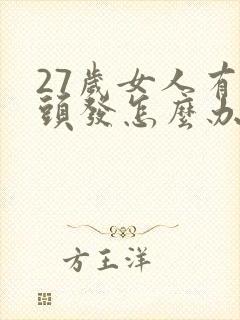 27歲女人有
頭發怎麼办
方王洋